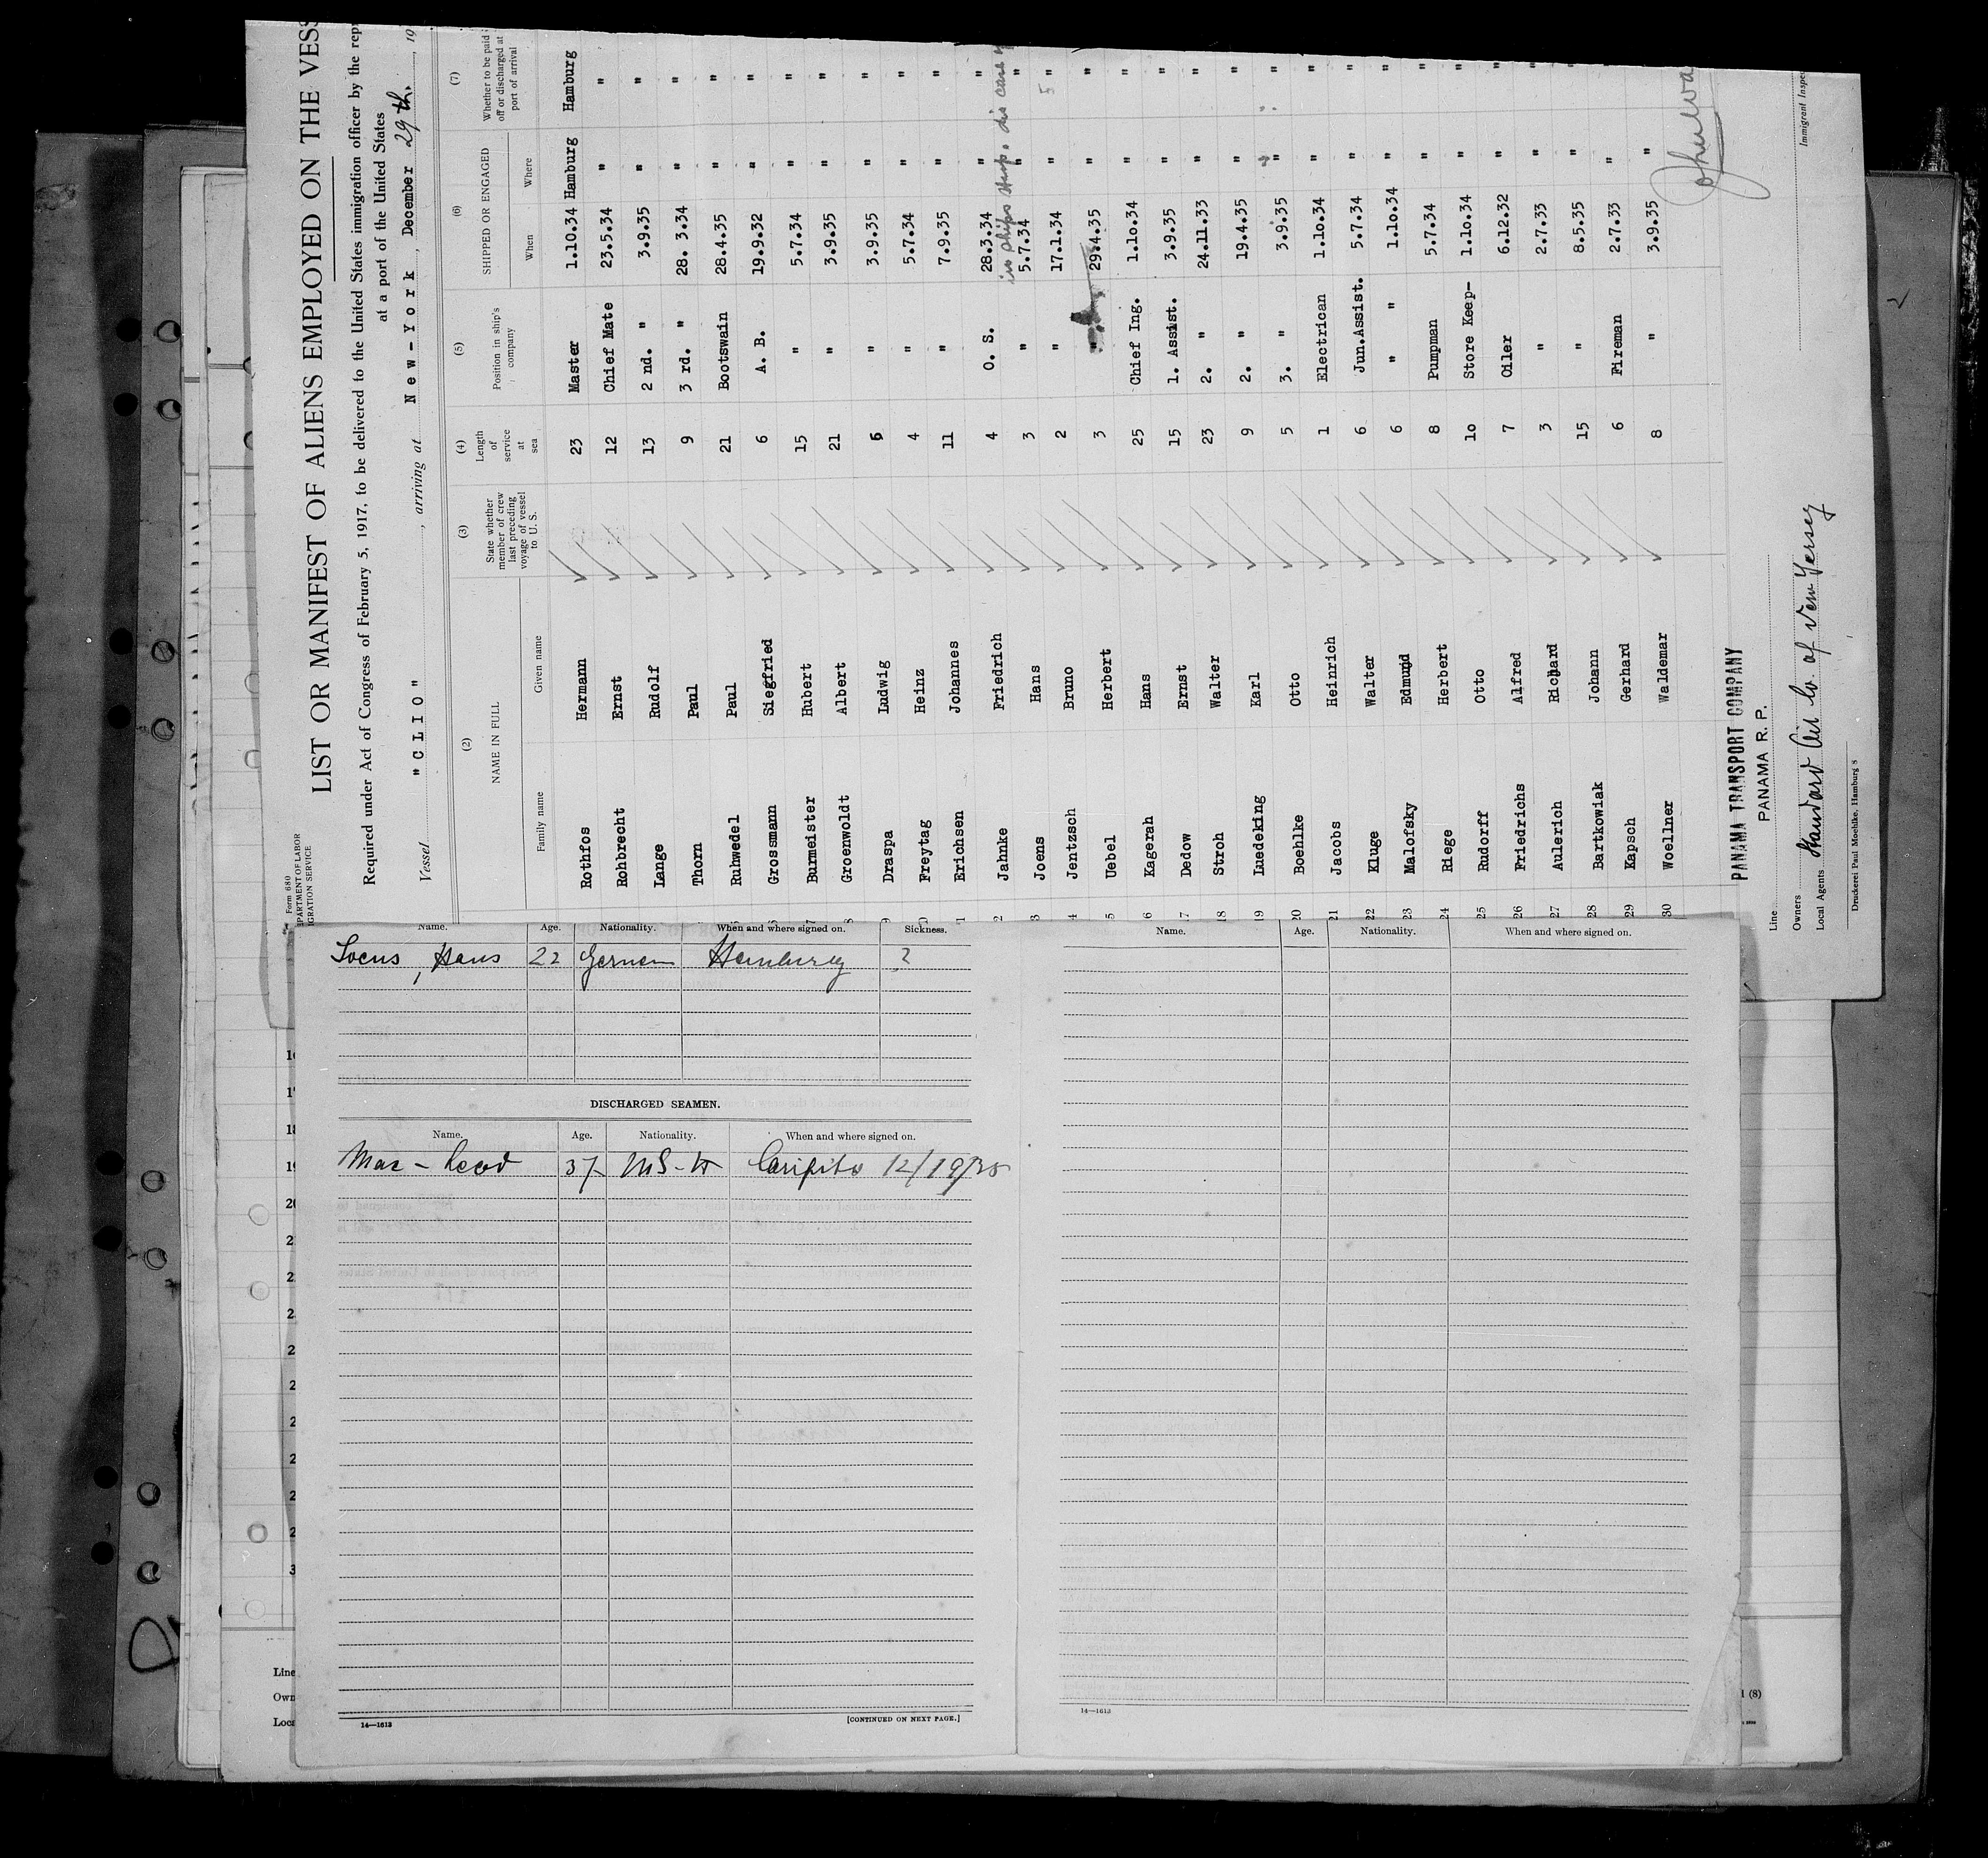 Form 680
LIST OR MANIFEST OF ALIENS EMPLOYED ON THE VESS
Required under Act of Congress of February 5, 1917, to be delivered to the United States immigration officer by the rep
at a port of the United States
Vessel "CLIO" , arriving at New-York , December 29th. , 19
(2) (3) (4) (5) (6) (7)
NAME IN FULL
State whether member of crew last preceding voyage of vessel to U. S.
Length of service at sea
Position in ship's company
SHIPPED OR ENGAGED
Whether to be paid off or discharged at port of arrival
Family name Given name When Where
Rothfos Hermann 23 Master 1.10.34 Hamburg Hamburg
Rohbrecht Ernst 12 Chief Mate 23.5.34 " "
Lange Rudolf 13 2 nd. " 3.9.35 " "
Thorn Paul 9 3 rd. " 28. 3.34 " "
Ruhwedel Paul 21 Bootswain 28.4.35 " "
Grossmann Siegfried 6 A. B. 19.9.32 " "
Burmeister Hubert 15 " 5.7.34 " "
8 Groenwoldt Albert 21 " 3.9.35 " "
9 Draspa Ludwig 6 " 3.9.35 " "
Freytag Heinz 4 " 5.7.34 " "
1 Erichsen Johannes 11 " 7.9.35 " "
2 Jahnke Friedrich 4 O. S. 28.3.34 " "
3 Joens Hans 3 " 5.7.34 " "
4 Jentzsch Bruno 2 " 17.1.34 " "
5 Uebel Herbert 3 " 29.4.35 " "
6 Kagerah Hans 25 Chief Ing. 1.10.34 " "
17 Dedow Ernst 15 1. Assist. 3.9.35 " "
18 Stroh Walter 23 2. " 24.11.33 " "
19 Luedeking Karl 9 2. " 19.4.35 " "
20 Boehlke Otto 5 3. " 3.9.35 " "
21 Jacobs Heinrich 1 Electrican 1.10.34 " "
22 Kluge Walter 6 Jun.Assist. 5.7.34 " "
23 Malofsky Edmund 6 " " 1.10.34 " "
24 Riege Herbert 8 Pumpman 5.7.34 " "
25 Rudorff Otto 10 Store Keep- 1.10.34 " "
26 Friedrichs Alfred 7 Oiler 6.12.32 " "
27 Aulerich Richard 3 " 2.7.33 " "
28 Bartkowiak Johann 15 " 8.5.35 " "
29 Kapsch Gerhard 6 Fireman 2.7.33 " "
30 Woellner Waldemar 8 " 3.9.35 "
PANAMA TRANSPORT COMPANY
Line PANAMA R. P.
Owners
Local Agents Standard Oil Co. of New Jersey
Immigrant Inspec
Druckerei Paul Moehlke, Hamburg 8
Name. Age. Nationality. When and where signed on. Sickness.
Joens, Hans 22 German Hamburg ?
DISCHARGED SEAMEN.
Name. Age. Nationality. When and where signed on.
Mac-Leod 37 Caripito 12/19/35
14—1613 [CONTINUED ON NEXT PAGE.]
Name. Age. Nationality. When and where signed on.
14—1613
18
20
Line
Own
Loca
(8)